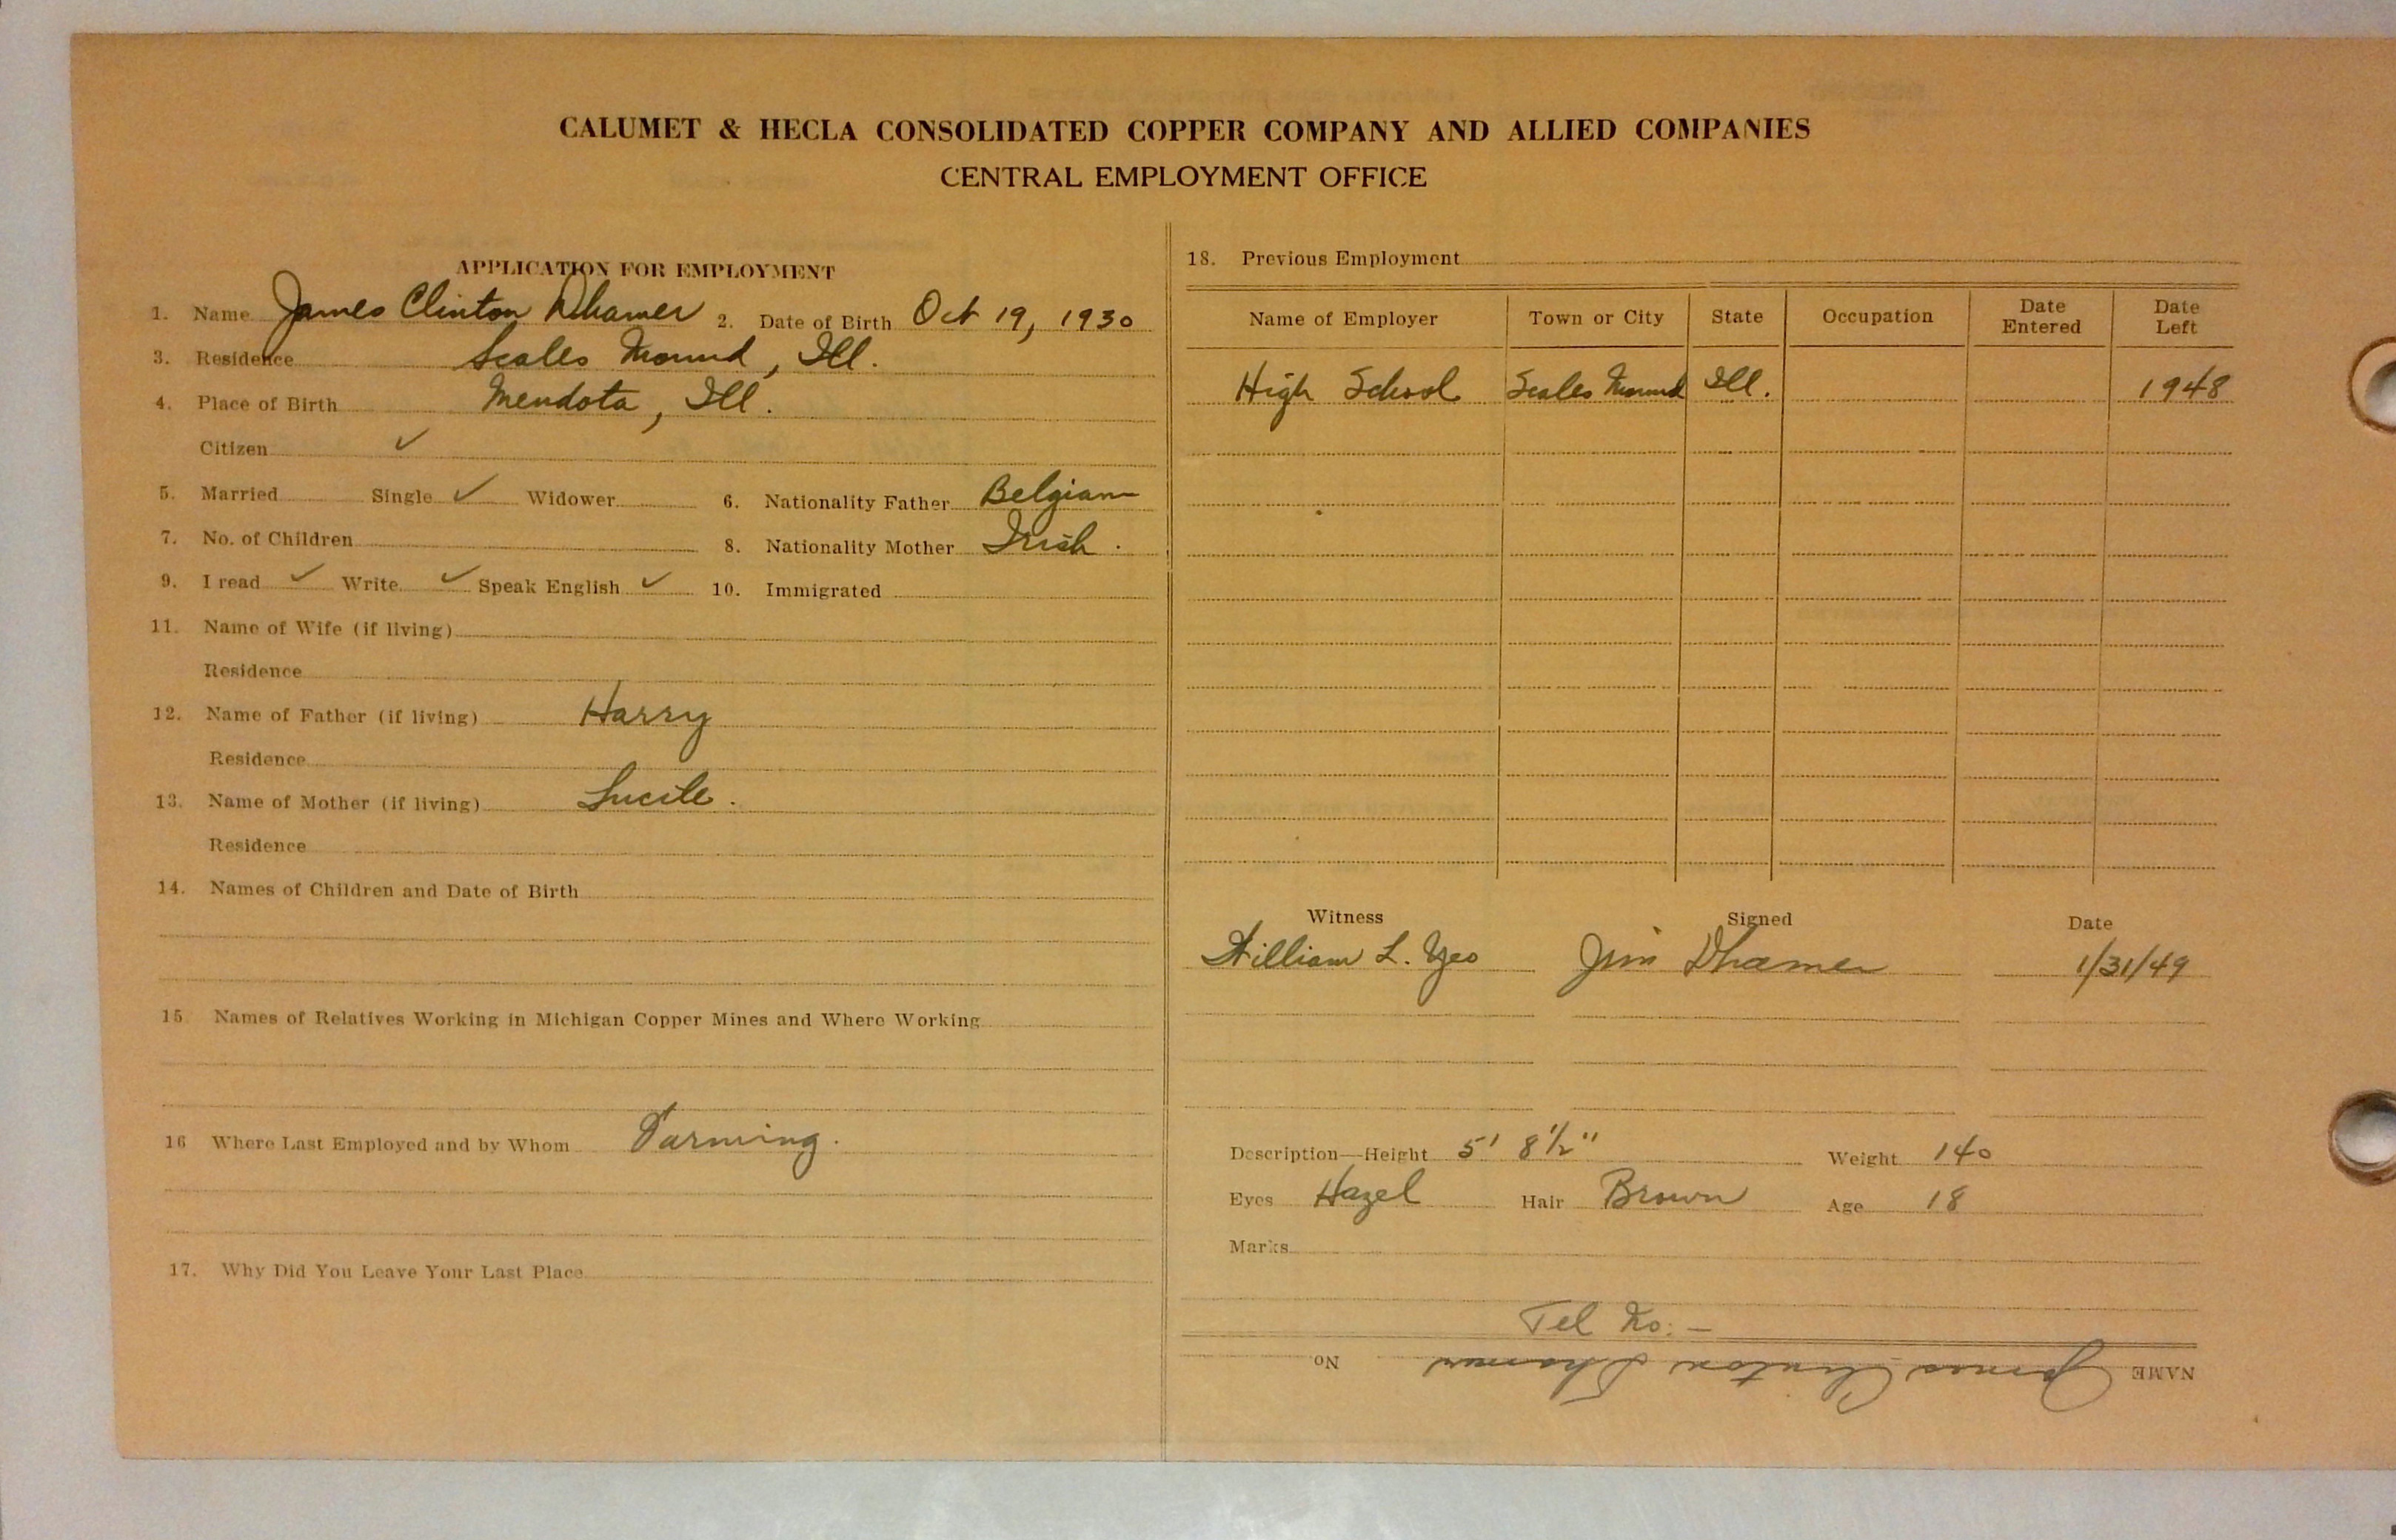 CALUMET & HECLA CONSOLIDATED COPPER COMPANY AND ALLIED COMPANIES
CENTRAL EMPLOYMENT OFFICE
APPLICATION FOR EMPLOYMENT
1. Name James Clinton Dhamer 2. Date of Birth Oct 19, 1930
3. Residence Scales Mound, Ill.
4. Place of Birth Mendota, Ill.
Citizen ✓
5. Married Single ✓ Widower 6. Nationality Father Belgian
7. No. of Children 8. Nationality Mother Irish.
9. I read ✓ Write ✓ Speak English ✓ 10. Immigrated
11. Name of Wife (if living)
Residence
12. Name of Father (if living) Harry
Residence
13. Name of Mother (if living) Lucile.
Residence
14. Names of Children and Date of Birth
15 Names of Relatives Working in Michigan Copper Mines and Where Working
16 Where Last Employed and by Whom Farming.
17. Why Did You Leave Your Last Place
18. Previous Employment
Name of Employer Town or City State Occupation Date Entered Date Left
High School Scales Mound Ill. 1948
Witness Signed Date
William L. Yeo Jim Dhamer 1/31/49
Description—Height 5' 8½" Weight 140
Eyes Hazel Hair Brown Age 18
Marks
Tel No. –
NAME James Clinton Dhamer No